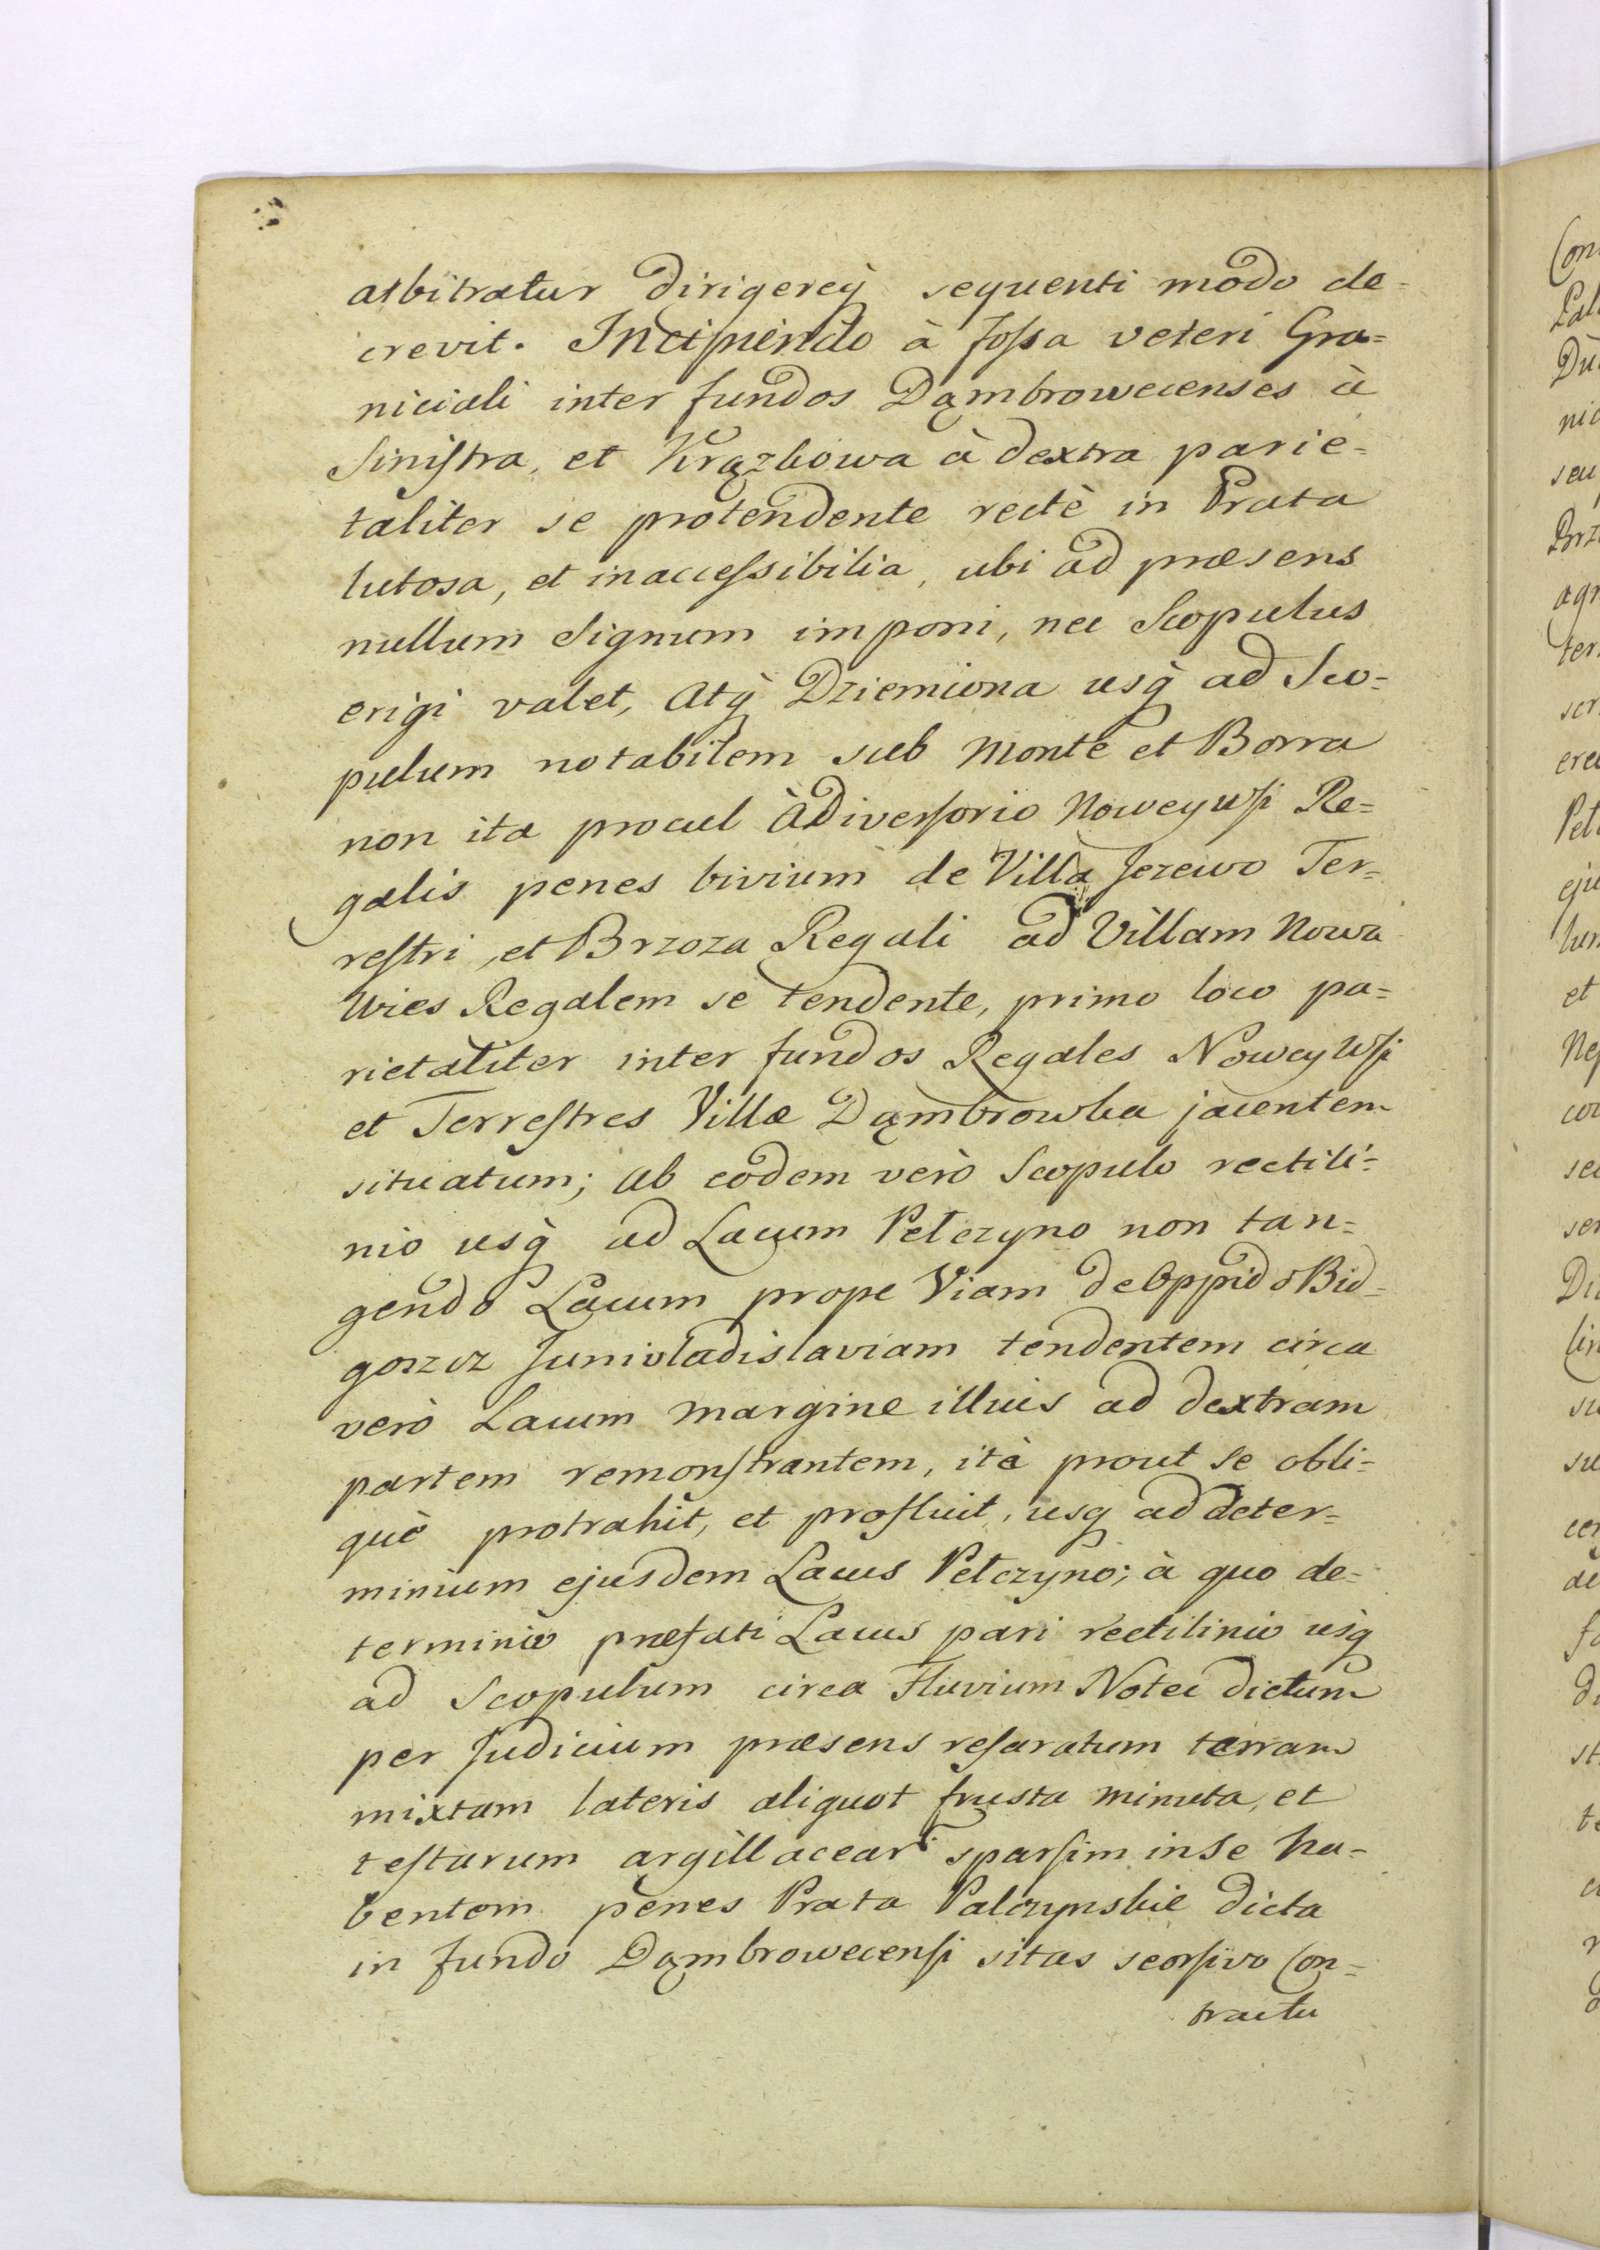 arbitratur dirigereq̀ sequenti modo de=
crevit. Incipiendo à fossa veteri Gra=
niciali inter fundos Dąmbrowecenses à
Sinistra, et Krązkowa à dextra parie=
taliter se protendente rectè in Prata
lutosa, et inaccessibilia, ubi ad præsens
nullum Signum imponi, nec Scopulus
erigi valet, atq̀ Dziemiona usq̀ ad Sco=
pulum notabilem sub Monte et Borra
non ita procul à Diversorio Noweywsi Re=
galis penes bivium de Villa Jezewo Ter=
restri, et Brzoza Regali ad Villam Nowa
Wies Regalem se tendente, primo loco pa=
rietaliter inter fundos Regales Noweywsi
et Terrestres Villæ Dąmbrowka jacentem
situatum; ab eodem verò Scopulo rectili=
nio usq̀ ad Lacum Pelczyno non tan=
gendo Lacum prope Viam de Oppido Bid=
goszcz Junivladislaviam tendentem circa
verò Lacum margine illius ad dextram
partem remonstrantem, ità prout se obli=
què protrahit, et profluit, usq ad deter=
minium ejusdem Lacus Pelczyno; à quo de=
terminio præfati Lacus pari rectilinio usq̀
ad Scopulum circa Fluvium Notec dictum
per Judicium præsens reseratum terram
mixtam lateris aliquot frusta minuta, et
testarum argillacear' sparsim in se ha=
bentem penes Prata Palczynskie dicta
in fundo Dąmbrowecensi sitas seorsivo Con=
tractu
Con
Pal
nic
seu
Brz
agr
ter
scr
erec
Pet
eju
et